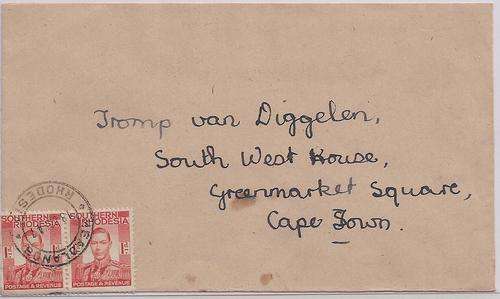 Tromp van Diggelen,
South West House,
Greenmarket Square,
Cape Town.
SOUTHERN RHODESIA
1D
POSTAGE & REVENUE
SOUTHERN RHODESIA
1D
POSTAGE & REVENUE